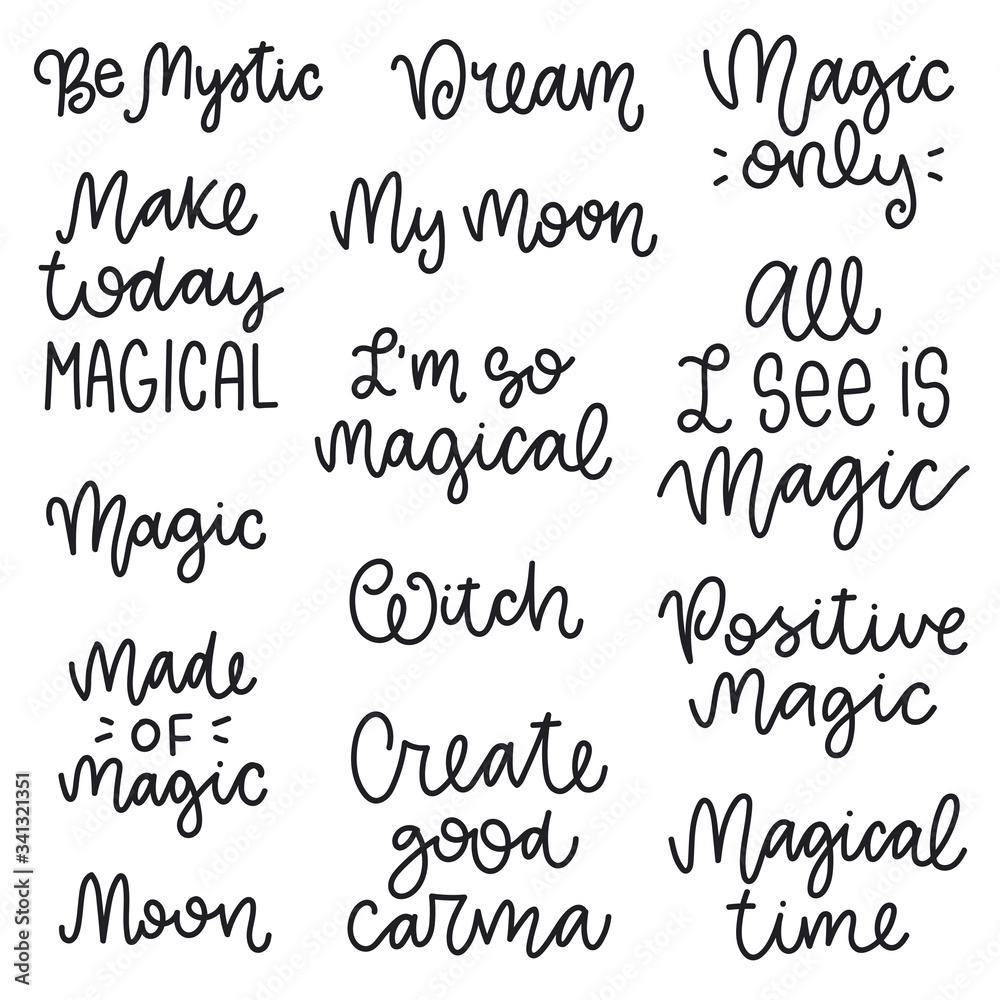 Be Mystic
Make
today
MAGICAL
Magic
Made
OF
Magic
Moon
Dream
My Moon
I'm so
magical
Witch
Create
good
carma
Magic
only
all
I see is
Magic
Positive
Magic
Magical
time
Adobe Stock | #341321351